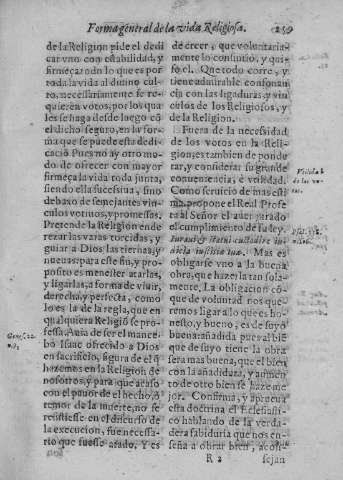 Forma general de la vida Religiosa.
de la Religion pide el dedi
car vno con estabilidad, y
firmeza, todo lo que es por
toda la vida al diuino cul
to, necessariamente se re-
quieren votos, por los quales
se haga desde luego cõ
el dicho seguro, en la for-
ma que se puede esta dedi-
caciõ. Pues no ay otro mo-
do de ofrecer con mayor
firmeça la vida toda junta,
siendo ella sucessiua, sino
debaxo de semejantes vin-
culos votiuos, y promessas.
Pretende la Religion ende
rezar las varas torcidas, y
guiar a Dios las tiernas, y
nueuas: para este fin, y pro-
posito es menester atarlas,
y ligarlas, a forma de viuir,
derecha, y perfecta, como
lo es la de la regla, que en
qualquiera Religiõ se pro-
fessa. Aun de ser el mance-
bo Isaac ofrecido a Dios
en sacrificio, figura de el q̃
hazemos en la Religion de
nosotros, y para que acaso
con el pauor de el hecho, ò
temor de la muerte, no se
resistiesse en el discurso de
la execucion, fue necessa-
rio que fuesse atado. Y es
Genes. 22.
de creer, que voluntaria-
mente lo consintio, y qui-
so el. Que todo corre, y
tiene admirable consonancia
con las ligaduras, y vin-
culos de los Religiosos, y
de la Religion.
Fuera de la necessidad
de los votos en la Reli-
gion, es tambien de ponde
rar, y considerar su grande
conueniencia, è vtilidad.
Como seruicio de mas esti
ma, propone el Real Profe
ta al Señor el auer jurado
el cumplimiento de su ley.
Iuraui, & statui custodire iu-
dicia iustitiæ tuæ. Mas es
obligarse vno a la buena
obra, que hazerla tan sola-
mente. La obligacion cõ
que de voluntad nos que-
remos ligar a lo que es ho-
nesto, y bueno, es de suyo
buena: añadida pues al bien
que de suyo tiene la obra
sera mas buena, que el bien
con la añadidura, y aumen
to de otro bien se haze me
jor. Confirma, y aprueua
esta doctrina el Ecclesiasti-
co hablando de la verda-
dera sabiduria que nos en-
seña a obrar bien, acon-
R 2
sejan